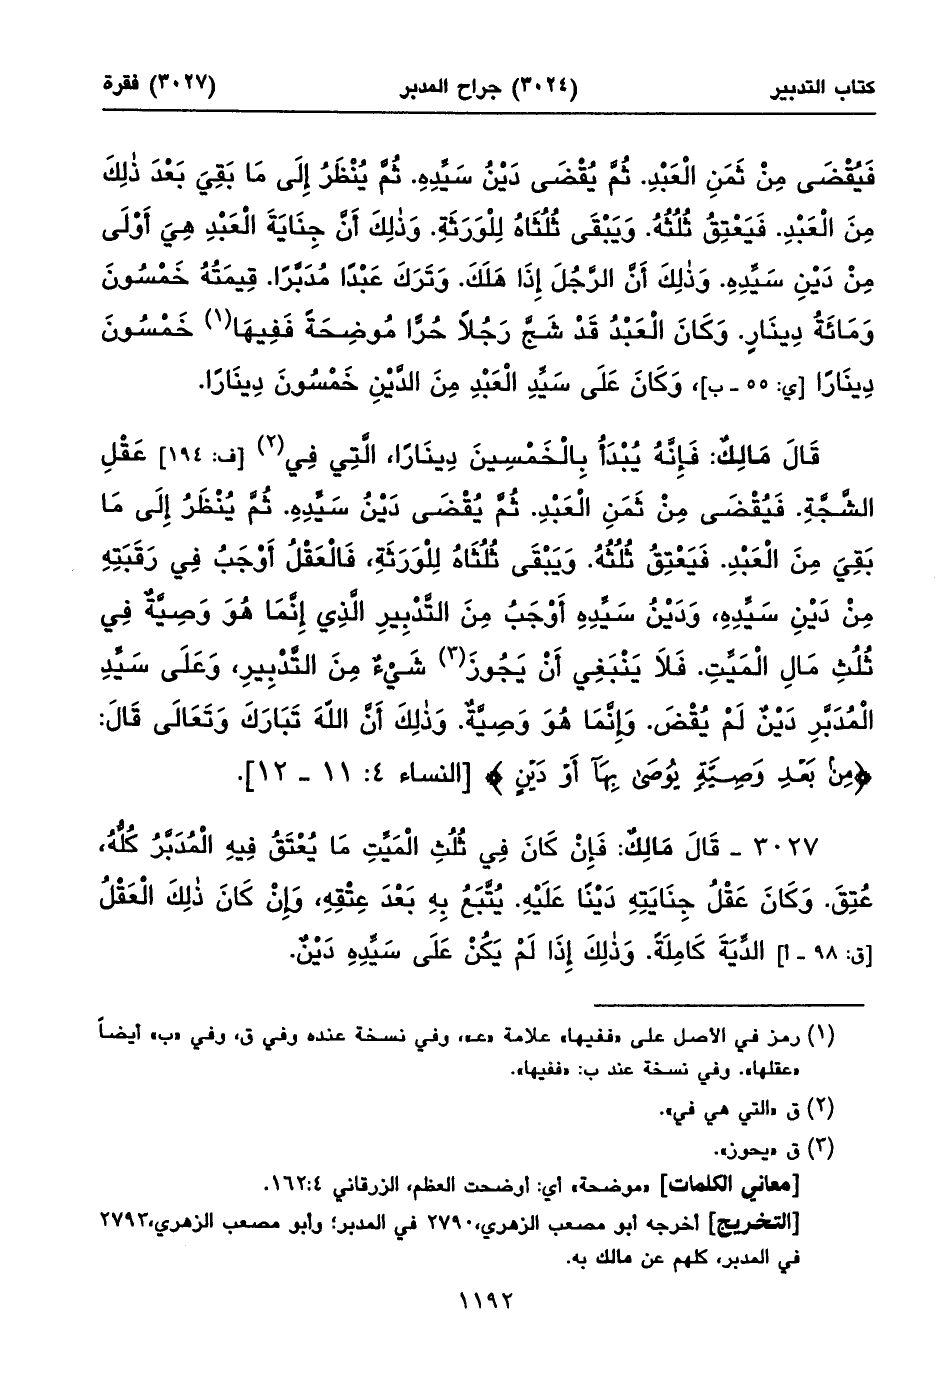 كتاب التدبير (٣٠٢٤) جراح المدبر (٣٠٢٧) فقرة
فَيُقْضَى مِنْ ثَمَنِ الْعَبْدِ. ثُمَّ يُقْضَى دَيْنُ سَيِّدِهِ. ثُمَّ يُنْظَرُ إِلَى مَا بَقِيَ بَعْدَ ذٰلِكَ
مِنَ الْعَبْدِ. فَيَعْتِقُ ثُلُثُهُ. وَيَبْقَى ثُلُثَاهُ لِلْوَرَثَةِ. وَذٰلِكَ أَنَّ جِنَايَةَ الْعَبْدِ هِيَ أَوْلَى
مِنْ دَيْنِ سَيِّدِهِ. وَذٰلِكَ أَنَّ الرَّجُلَ إِذَا هَلَكَ. وَتَرَكَ عَبْدًا مُدَبَّرًا. قِيمَتُهُ خَمْسُونَ
وَمَائَةُ دِينَارٍ. وَكَانَ الْعَبْدُ قَدْ شَجَّ رَجُلاً حُرًّا مُوضِحَةً فَفِيهَا(١) خَمْسُونَ
دِينَارًا [ي: ٥٥ - ب]، وَكَانَ عَلَى سَيِّدِ الْعَبْدِ مِنَ الدَّيْنِ خَمْسُونَ دِينَارًا.
قَالَ مَالِكٌ: فَإِنَّهُ يُبْدَأُ بِالْخَمْسِينَ دِينَارًا، الَّتِي فِي(٢) [ف: ١٩٤] عَقْلِ
الشَّجَّةِ. فَيُقْضَى مِنْ ثَمَنِ الْعَبْدِ. ثُمَّ يُقْضَى دَيْنُ سَيِّدِهِ. ثُمَّ يُنْظَرُ إِلَى مَا
بَقِيَ مِنَ الْعَبْدِ. فَيَعْتِقُ ثُلُثُهُ. وَيَبْقَى ثُلُثَاهُ لِلْوَرَثَةِ، فَالْعَقْلُ أَوْجَبُ فِي رَقَبَتِهِ
مِنْ دَيْنِ سَيِّدِهِ، وَدَيْنُ سَيِّدِهِ أَوْجَبُ مِنَ التَّدْبِيرِ الَّذِي إِنَّمَا هُوَ وَصِيَّةٌ فِي
ثُلُثِ مَالِ الْمَيِّتِ. فَلاَ يَنْبَغِي أَنْ يَجُوزَ(٣) شَيْءٌ مِنَ التَّدْبِيرِ، وَعَلَى سَيِّدِ
الْمُدَبَّرِ دَيْنٌ لَمْ يُقْضَ. وَإِنَّمَا هُوَ وَصِيَّةٌ. وَذٰلِكَ أَنَّ اللهَ تَبَارَكَ وَتَعَالَى قَالَ:
﴿مِنْ بَعْدِ وَصِيَّةٍ يُوصَىٰ بِهَآ أَوْ دَيْنٍ﴾ [النساء ٤: ١١ - ١٢].
٣٠٢٧ - قَالَ مَالِكٌ: فَإِنْ كَانَ فِي ثُلُثِ الْمَيِّتِ مَا يُعْتَقُ فِيهِ الْمُدَبَّرُ كُلُّهُ،
عُتِقَ. وَكَانَ عَقْلُ جِنَايَتِهِ دَيْنًا عَلَيْهِ. يُتَّبَعُ بِهِ بَعْدَ عِتْقِهِ، وَإِنْ كَانَ ذٰلِكَ الْعَقْلُ
[ق: ٩٨ - أ] الدِّيَةَ كَامِلَةً. وَذٰلِكَ إِذَا لَمْ يَكُنْ عَلَى سَيِّدِهِ دَيْنٌ.
(١) رمز في الأصل على «ففيها» علامة «عـ»، وفي نسخة عنده وفي ق، وفي «ب» أيضاً
«عقلها». وفي نسخة عند ب: «ففيها».
(٢) ق «التي هي في».
(٣) ق «يحوز».
[معاني الكلمات] «موضحة» أي: أوضحت العظم، الزرقاني ١٦٢:٤.
[التخريج] أخرجه أبو مصعب الزهري، ٢٧٩٠ في المدبر؛ وأبو مصعب الزهري، ٢٧٩٣
في المدبر، كلهم عن مالك به.
١١٩٢